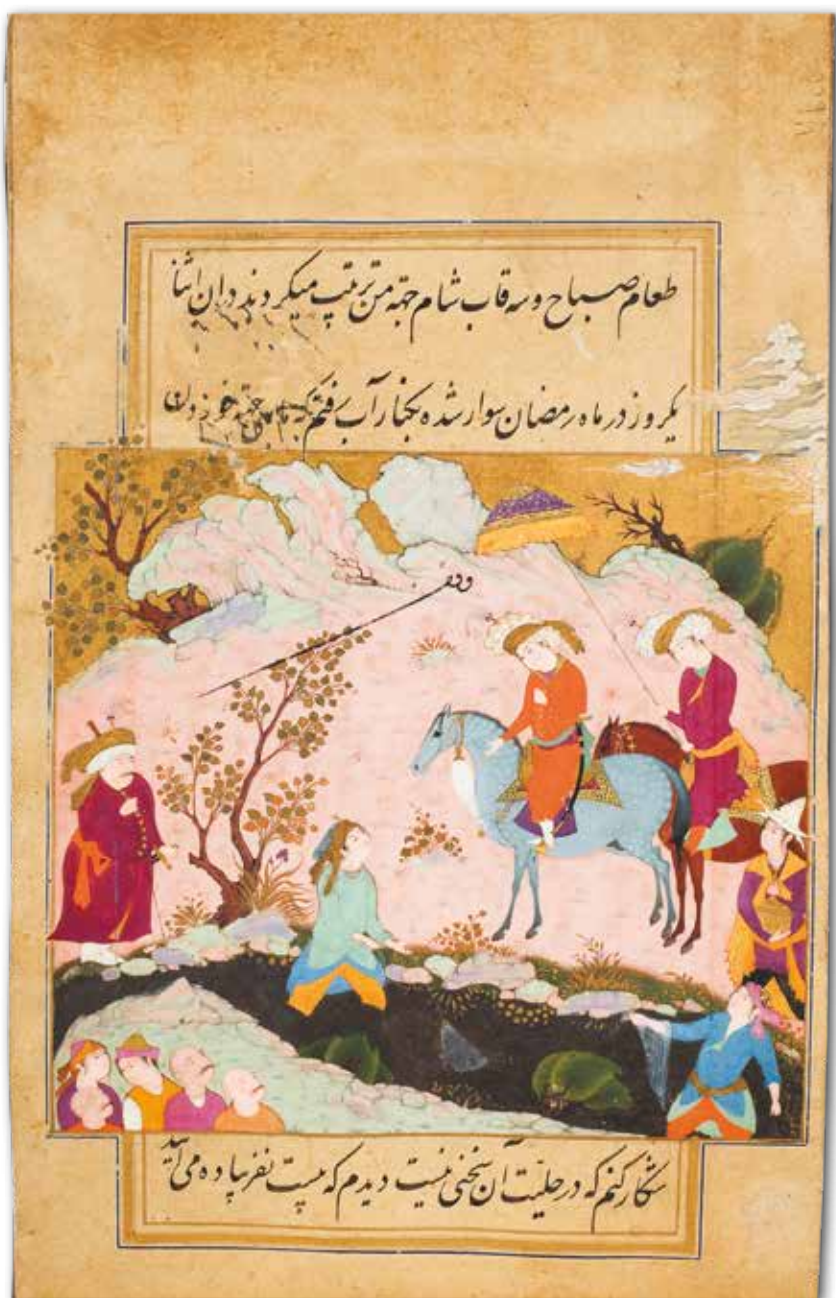 طعام صباح وسه قاب شام جهة من ترتیب میکردند دران اثنا
یکروز در ماه رمضان سوار شده بکنار آب رفتم که جهة خوردن
وقف
شکار کنم که در حلیّت آن سخنی نیست دیدم که بیست نفر پیاده می آید